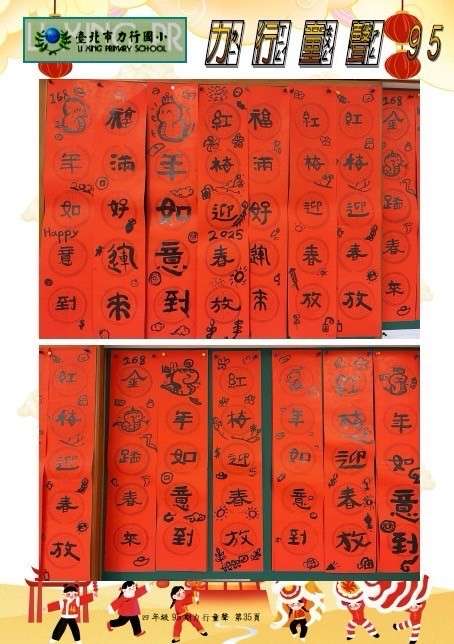 臺北市力行國小
LI XING PRIMARY SCHOOL
力行童聲 95
168
年如意到
Happy
福滿好運來
年如意到
紅梅迎春放
2025
福滿好運來
紅梅迎春放
紅梅迎春放
168
金踏春來
紅梅迎春放
168
金踏春來
年如意到
紅梅迎春放
年如意到
紅梅迎春放
年如意到
四年級 95期力行童聲 第35頁